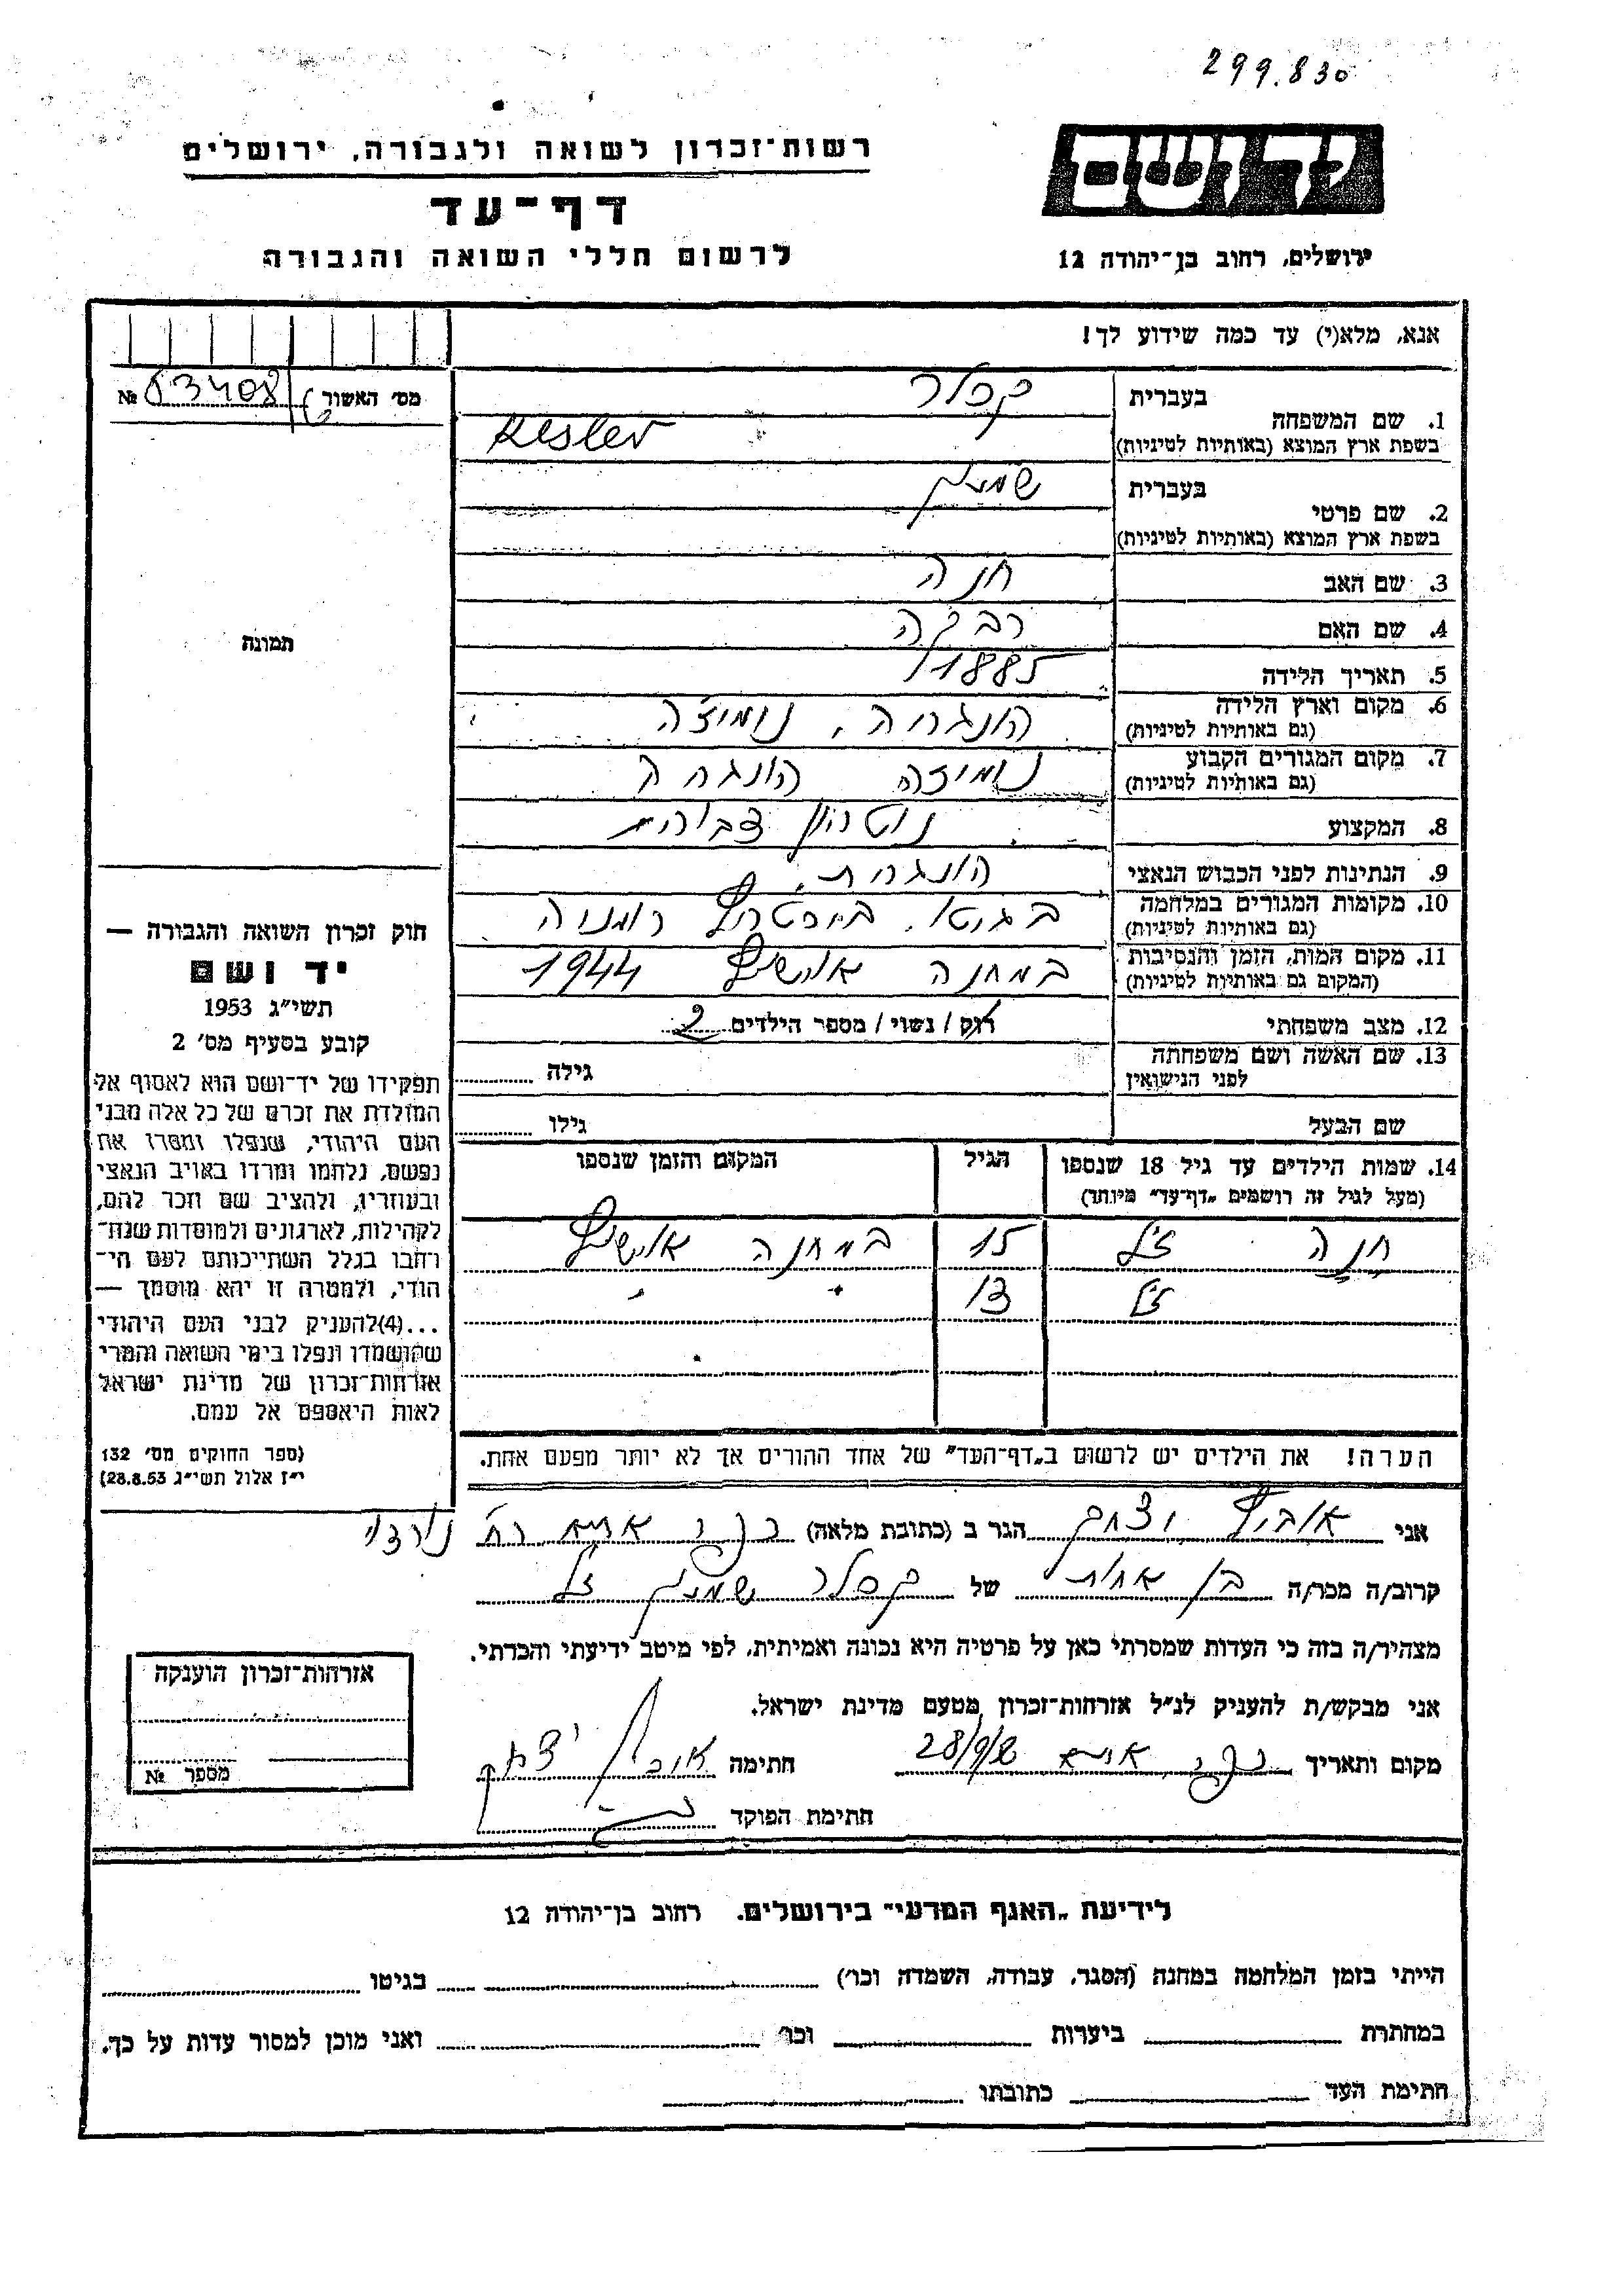 299.830
רשות־זכרון לשואה ולגבורה, ירושלים
יד ושם
דף־עד
לרשום חללי השואה והגבורה
ירושלים, רחוב בן־יהודה 12
אנא, מלא(י) עד כמה שידוע לך!
מס׳ האשור № 63408
1. שם המשפחה
בעברית קסלר
בשפת ארץ המוצא (באותיות לטיניות) Kesler
2. שם פרטי
בעברית
בשפת ארץ המוצא (באותיות לטיניות)
3. שם האב חנה
4. שם האם רבקה
5. תאריך הלידה 1885
6. מקום וארץ הלידה
(גם באותיות לטיניות)
הונגריה,
7. מקום המגורים הקבוע
(גם באותיות לטיניות)
8. המקצוע
9. הנתינות לפני הכבוש הנאצי הונגרית
10. מקומות המגורים במלחמה
(גם באותיות לטיניות)
בגיטו. רומניה
11. מקום המות, הזמן והנסיבות
(המקום גם באותיות לטיניות)
במחנה אושויץ 1944
12. מצב משפחתי רוק / נשוי / מספר הילדים 2
13. שם האשה ושם משפחתה
לפני הנישואין
גילה
שם הבעל גילו
14. שמות הילדים עד גיל 18 שנספו
(מעל לגיל זה רושמים „דף־עד״ מיוחד)
הגיל
המקום והזמן שנספו
חנה ז״ל 15 במחנה אושויץ
ז״ל 13
הערה! את הילדים יש לרשום ב„דף־העד״ של אחד ההורים אך לא יותר מפעם אחת.
תמונה
חוק זכרון השואה והגבורה —
יד ושם
תשי״ג 1953
קובע בסעיף מס׳ 2
תפקידו של יד־ושם הוא לאסוף אל
המולדת את זכרם של כל אלה מבני
העם היהודי, שנפלו ומסרו את
נפשם, נלחמו ומרדו באויב הנאצי
ובעוזריו, ולהציב שם וזכר להם,
לקהילות, לארגונים ולמוסדות שנח־
רבו בגלל השתייכותם לעם הי־
הודי, ולמטרה זו יהא מוסמך —
...(4)להעניק לבני העם היהודי
שהושמדו ונפלו בימי השואה והמרי
אזרחות־זכרון של מדינת ישראל
לאות היאספם אל עמם.
(ספר החוקים מס׳ 132
י״ז אלול תשי״ג 28.8.53)
אני יצחק הגר ב (כתובת מלאה) רח׳
קרוב/ה מכר/ה בן אחות של קסלר ז״ל
מצהיר/ה בזה כי העדות שמסרתי כאן על פרטיה היא נכונה ואמיתית, לפי מיטב ידיעתי והכרתי.
אני מבקש/ת להעניק לנ״ל אזרחות־זכרון מטעם מדינת ישראל.
מקום ותאריך חתימה יצחק
חתימת הפוקד
אזרחות־זכרון הוענקה
מספר №
לידיעת „האגף המדעי״ בירושלים. רחוב בן־יהודה 12
הייתי בזמן המלחמה במחנה (הסגר, עבודה, השמדה וכו׳) בגיטו
במחתרת ביערות וכו׳ ואני מוכן למסור עדות על כך.
חתימת העד כתובתו